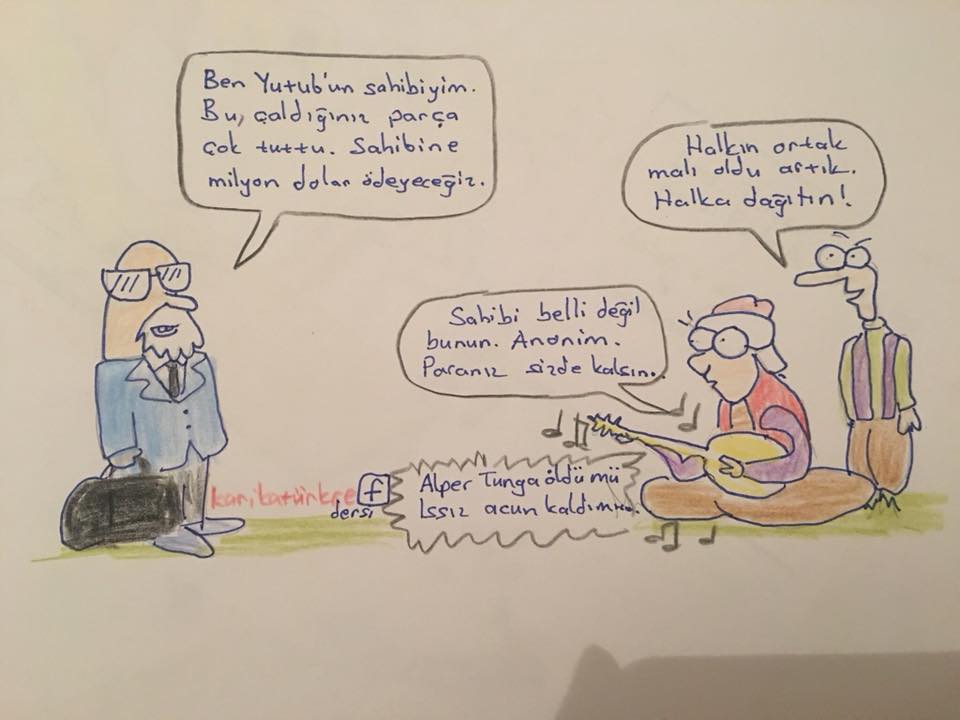 Ben Yutub'un sahibiyim.
Bu, çaldığınız parça
çok tuttu. Sahibine
milyon dolar ödeyeceğiz.
Halkın ortak
malı oldu artık.
Halka dağıtın!
Sahibi belli değil
bunun. Anonim.
Paranız sizde kalsın.
Alper Tunga öldü mü
Issız acun kaldımı
karikatürkçe f
dersi